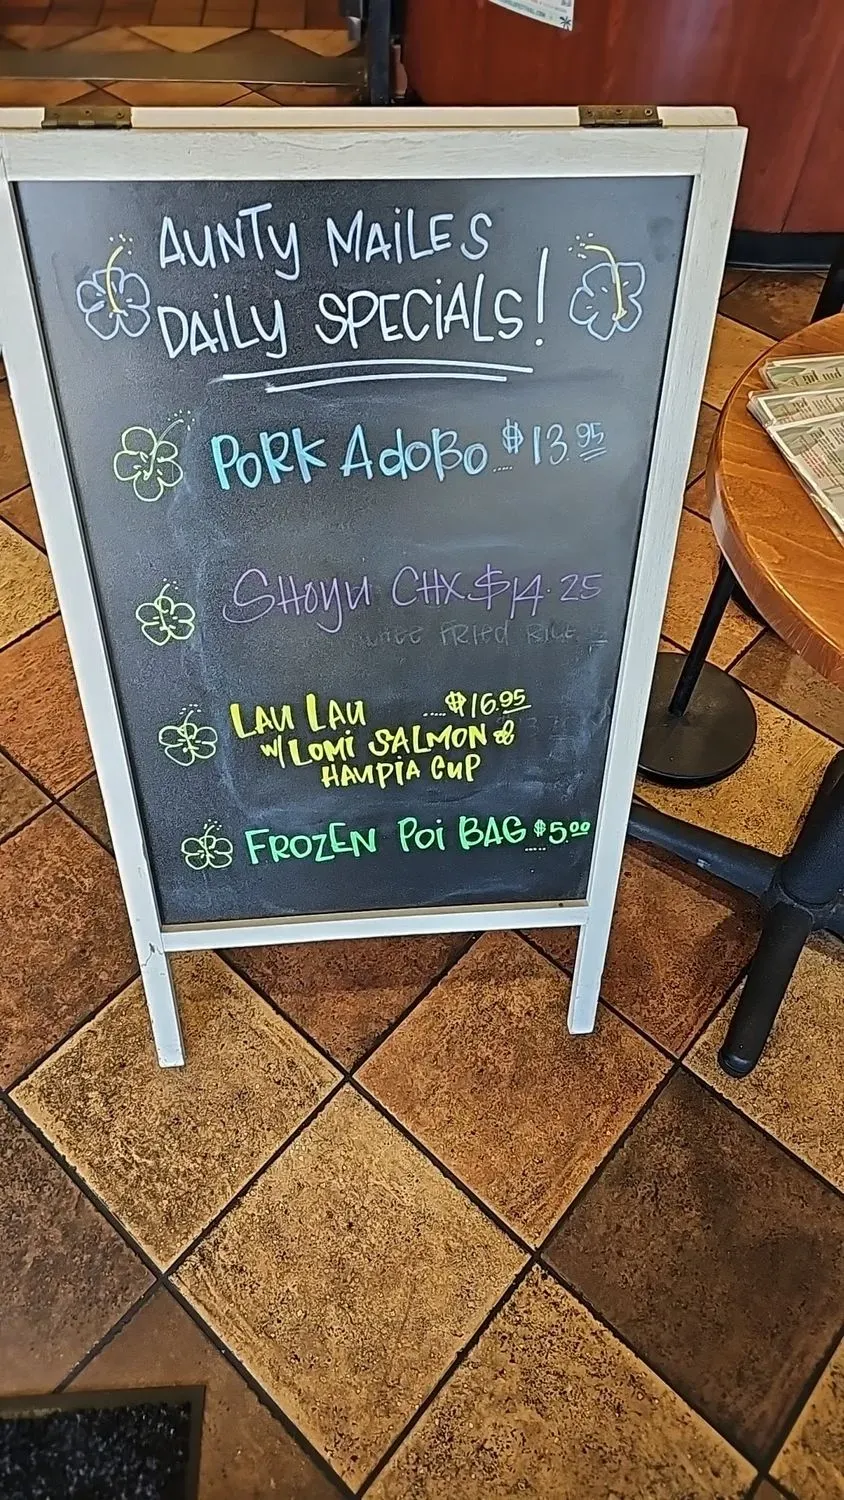 AUNTY MAILES
DAILY SPECIALS!
PORK ADOBO ....$13.95
SHOYU CHX $14.25
FRIED RICE
LAU LAU ....$16.95
W/ LOMI SALMON &
HAUPIA CUP
FROZEN POI BAG ....$5.00